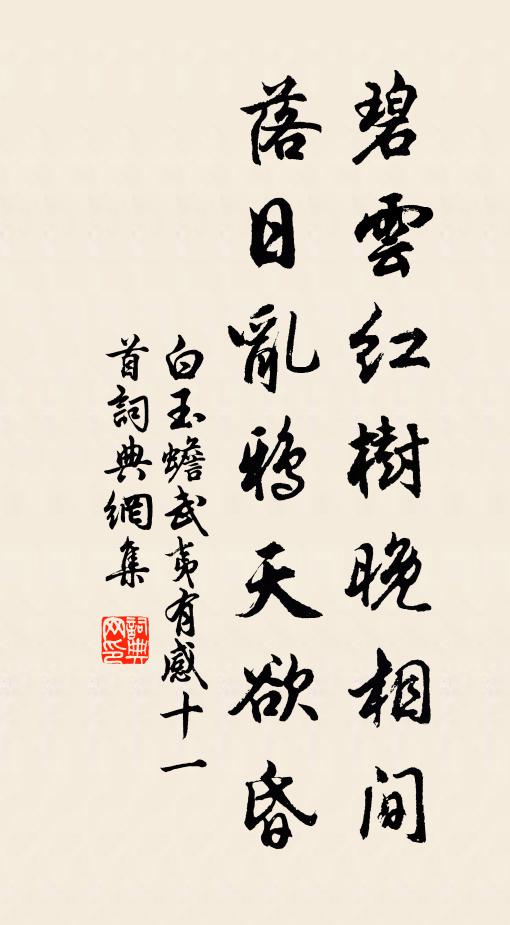 碧雲紅樹晚相間
落日亂鴉天欲昏
白玉蟾武夷有感十一
首詞典網集
詞典網印